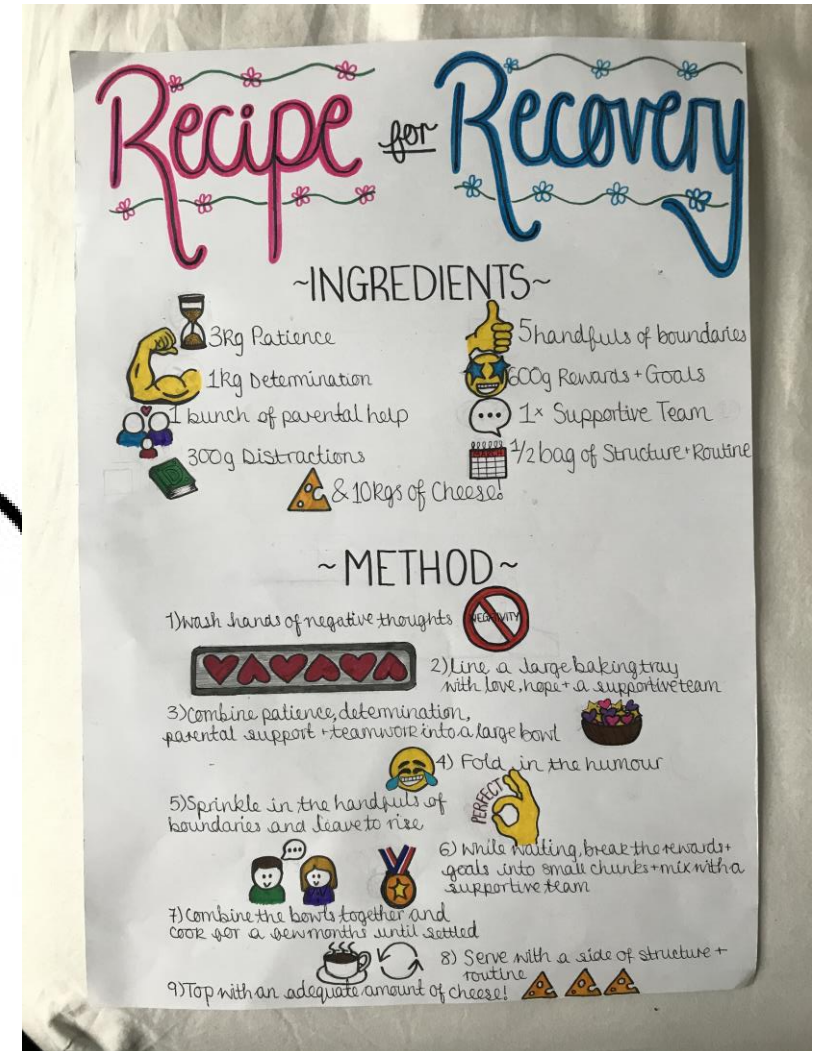 Recipe for Recovery
~INGREDIENTS~
3kg Patience
1kg Determination
1 bunch of parental help
300g Distractions
5 handfuls of boundaries
600g Rewards + Goals
1x Supportive Team
MARCH
1/2 bag of Structure + Routine
& 10kgs of Cheese!
~METHOD~
1) Wash hands of negative thoughts
NEGATIVITY
2) Line a large baking tray
with love, hope + a supportive team
3) Combine patience, determination,
parental support + teamwork into a large bowl
4) Fold in the humour
5) Sprinkle in the handfuls of
boundaries and leave to rise
PERFECT
6) While waiting, break the rewards +
goals into small chunks + mix with a
supportive team
7) Combine the bowls together and
cook for a few months until settled
8) Serve with a side of structure +
routine
9) Top with an adequate amount of cheese!